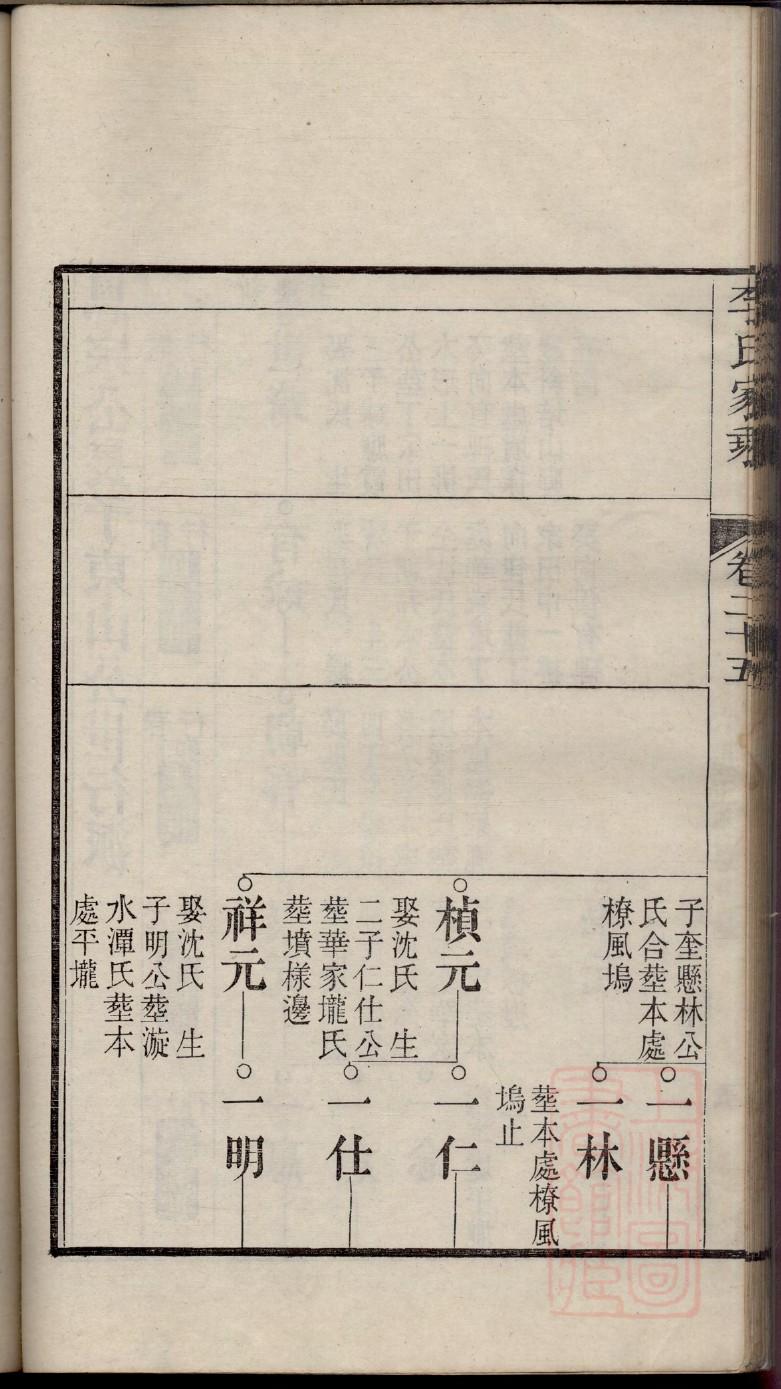 李氏家乘
卷二十五
子奎懸林公
氏合塟本處
橑風塢
一懸
一林
塟本處橑風
塢止
楨元
娶沈氏 生
二子仁仕公
塟華家壠氏
塟墳樣邊
一仁
一仕
祥元
娶沈氏 生
子明公塟漩
水潭氏塟本
處平壠
一明